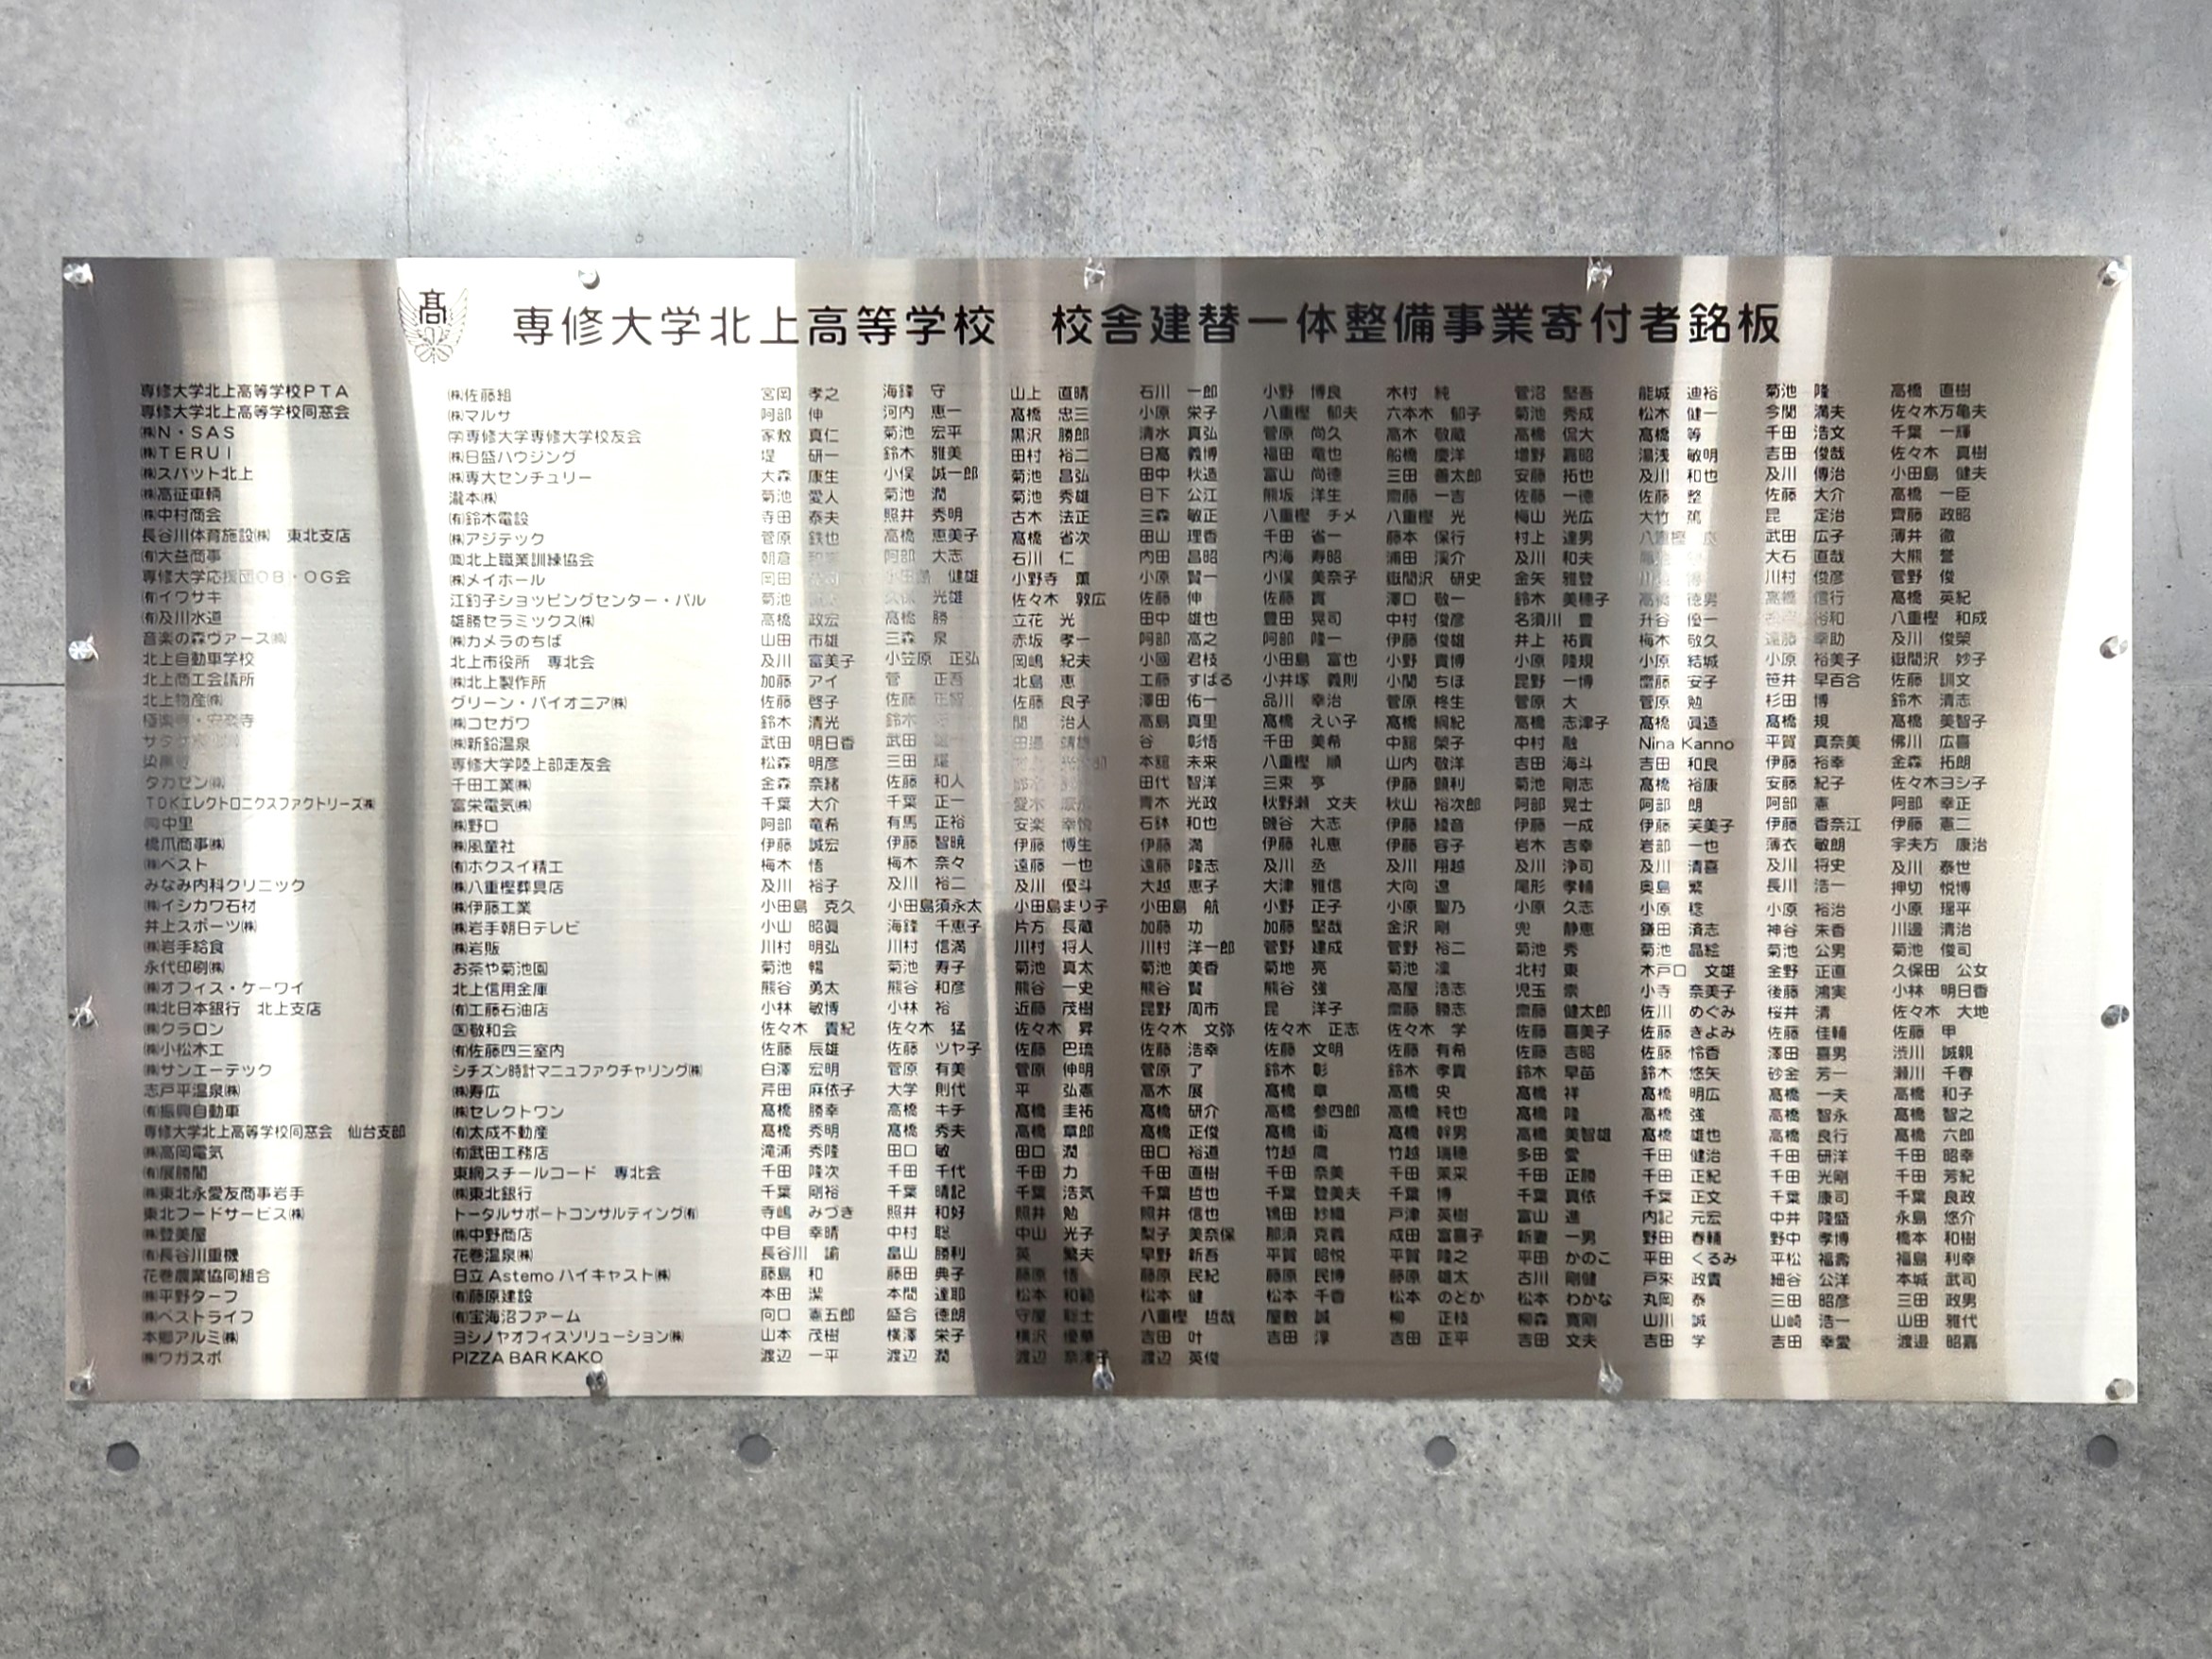 髙
専修大学北上高等学校　校舎建替一体整備事業寄付者銘板
専修大学北上高等学校ＰＴＡ
専修大学北上高等学校同窓会
㈱Ｎ・ＳＡＳ
㈱ＴＥＲＵＩ
㈱スパット北上
㈱高征車輌
㈱中村商会
長谷川体育施設㈱　東北支店
㈲大益商事
専修大学応援団ＯＢ・ＯＧ会
㈲イワサキ
㈲及川水道
音楽の森ヴァース㈱
北上自動車学校
北上商工会議所
北上物産㈱
極楽寺・安楽寺
タカセン㈱
ＴＤＫエレクトロニクスファクトリーズ㈱
中里
橋爪商事㈱
㈱ベスト
みなみ内科クリニック
㈱イシカワ石材
井上スポーツ㈱
㈱岩手給食
永代印刷㈱
㈱オフィス・ケーワイ
㈱北日本銀行　北上支店
㈱クラロン
㈱小松木工
㈱サンエーテック
志戸平温泉㈱
㈲振興自動車
専修大学北上高等学校同窓会　仙台支部
㈱高岡電気
㈲展勝閣
㈱東北永愛友商事岩手
東北フードサービス㈱
㈱登美屋
㈲長谷川重機
花巻農業協同組合
㈱平野ターフ
㈱ベストライフ
本郷アルミ㈱
㈱ワガスポ
㈱佐藤組
㈱マルサ
㈻専修大学専修大学校友会
㈱日盛ハウジング
㈱専大センチュリー
瀧本㈱
㈲鈴木電設
㈱アジテック
北上職業訓練協会
㈱メイホール
江釣子ショッピングセンター・パル
雄勝セラミックス㈱
㈱カメラのちば
北上市役所　専北会
㈱北上製作所
グリーン・パイオニア㈱
㈱コセガワ
㈱新鉛温泉
専修大学陸上部走友会
千田工業㈱
富栄電気㈱
㈱野口
㈱風童社
㈲ホクスイ精工
㈱八重樫葬具店
㈱伊藤工業
㈱岩手朝日テレビ
㈱岩販
お茶や菊池園
北上信用金庫
㈲工藤石油店
敬和会
㈲佐藤四三室内
シチズン時計マニュファクチャリング㈱
㈱寿広
㈱セレクトワン
㈲太成不動産
㈲武田工務店
東綱スチールコード　専北会
㈱東北銀行
トータルサポートコンサルティング㈲
㈱中野商店
花巻温泉㈱
日立 Astemo ハイキャスト㈱
㈲藤原建設
㈲宝海沼ファーム
ヨシノヤオフィスソリューション㈱
PIZZA BAR KAKO
宮岡　孝之　海鋒　守　山上　直晴　石川　一郎　小野　博良　木村　純　菅沼　堅吾　能城　迪裕　菊池　隆　高橋　直樹
阿部　伸　河内　恵一　髙橋　忠三　小原　栄子　八重樫　郁夫　六本木　郁子　菊池　秀成　松木　健一　今関　満夫　佐々木万亀夫
家敷　真仁　菊池　宏平　黒沢　勝郎　清水　真弘　菅原　尚久　高木　敬蔵　高橋　侃大　髙橋　等　千田　浩文　千葉　一輝
堤　研一　鈴木　雅美　田村　裕二　日髙　義博　福田　竜也　船橋　慶洋　増野　嘉昭　湯浅　敏明　吉田　俊哉　佐々木　真樹
大森　康生　小俣　誠一郎　菊池　昌弘　田中　秋造　富山　尚徳　三田　善太郎　安藤　拓也　及川　和也　及川　傳治　小田島　健夫
菊池　愛人　菊池　潤　菊池　秀雄　日下　公江　熊坂　洋生　齋藤　一吉　佐藤　一徳　佐藤　整　佐藤　大介　高橋　一臣
寺田　泰夫　照井　秀明　古木　法正　三森　敏正　八重樫　チメ　八重樫　光　梅山　光広　大竹　篤　昆　定治　齊藤　政昭
菅原　鉄也　高橋　恵美子　髙橋　省次　田山　理香　千田　省一　藤本　保行　村上　達男　八重樫　武田　広子　薄井　徹
朝倉　阿部　大志　石川　仁　内田　昌昭　内海　寿昭　浦田　渓介　及川　和夫　大石　直哉　大熊　誉
岡田　小田島　健雄　小野寺　薫　小原　賢一　小俣　美奈子　嶽間沢　研史　金矢　雅登　川村　俊彦　菅野　俊
菊池　光雄　佐々木　敦広　佐藤　伸　佐藤　實　澤口　敬一　鈴木　美穂子　高橋　徳男　高橋　信行　髙橋　英紀
高橋　政宏　髙橋　勝　立花　光　田中　雄也　豊田　晃司　中村　俊彦　名須川　豊　升谷　優一　裕和　八重樫　和成
山田　市雄　三森　泉　赤坂　孝一　阿部　高之　阿部　隆一　伊藤　俊雄　井上　祐貴　梅木　敬久　遠藤　幸助　及川　俊榮
及川　富美子　小笠原　正弘　岡嶋　紀夫　小國　君枝　小田島　富也　小野　貴博　小原　隆規　小原　結城　小原　裕美子　嶽間沢　妙子
加藤　アイ　菅　正吾　北島　恵　工藤　すばる　小井塚　義則　小関　ちほ　昆野　一博　齋藤　安子　笹井　早百合　佐藤　訓文
佐藤　啓子　佐藤　佐藤　良子　澤田　佑一　品川　幸治　菅原　柊生　菅原　大　菅原　勉　杉田　博　鈴木　清志
鈴木　清光　鈴木　関　治人　高島　真里　髙橋　えい子　髙橋　綱紀　高橋　志津子　髙橋　眞造　髙橋　規　髙橋　美智子
武田　明日香　武田　谷　彰悟　千田　美希　中舘　榮子　中村　融　Nina Kanno　平賀　真奈美　佛川　広喜
松森　明彦　三田　本舘　未来　八重樫　順　山内　敬洋　吉田　海斗　吉田　和良　伊藤　裕幸　金森　拓朗
金森　奈緒　佐藤　和人　田代　智洋　三東　亨　伊藤　顕利　菊池　剛志　髙橋　裕康　安藤　紀子　佐々木ヨシ子
千葉　大介　千葉　正一　青木　光政　秋野瀬　文夫　秋山　裕次郎　阿部　晃士　阿部　朗　阿部　憲　阿部　幸正
阿部　竜希　有馬　正裕　安楽　幸悦　石鉢　和也　磯谷　大志　伊藤　綾音　伊藤　一成　伊藤　芙美子　伊藤　香奈江　伊藤　憲二
伊藤　誠宏　伊藤　智暁　伊藤　博生　伊藤　満　伊藤　礼恵　伊藤　容子　岩木　吉幸　岩部　一也　薄衣　敏朗　宇夫方　康治
梅木　悟　梅木　奈々　遠藤　一也　遠藤　隆志　及川　丞　及川　翔越　及川　浄司　及川　清喜　及川　将史　及川　泰世
及川　裕子　及川　裕二　及川　優斗　大越　恵子　大津　雅信　大向　遼　尾形　孝輔　奥島　繁　長川　浩一　押切　悦博
小田島　克久　小田島須永太　小田島まり子　小田島　航　小野　正子　小原　聖乃　小原　久志　小原　稔　小原　裕治　小原　瑶平
小山　昭眞　海鋒　千恵子　片方　長蔵　加藤　功　加藤　堅哉　金沢　剛　兜　静恵　鎌田　済志　神谷　朱香　川邉　清治
川村　明弘　川村　信満　川村　将人　川村　洋一郎　菅野　建成　菅野　裕二　菊池　秀　菊池　晶絵　菊池　公男　菊池　俊司
菊池　暢　菊池　寿子　菊池　真太　菊池　美香　菊地　亮　菊池　凜　北村　東　木戸口　文雄　金野　正直　久保田　公女
熊谷　勇太　熊谷　和彦　熊谷　一史　熊谷　賢　熊谷　強　高屋　浩志　児玉　崇　小寺　奈美子　後藤　鴻実　小林　明日香
小林　敏博　小林　裕　近藤　茂樹　昆野　周市　昆　洋子　齋藤　勝志　齋藤　健太郎　佐川　めぐみ　桜井　清　佐々木　大地
佐々木　貴紀　佐々木　猛　佐々木　昇　佐々木　文弥　佐々木　正志　佐々木　学　佐藤　喜美子　佐藤　きよみ　佐藤　佳輔　佐藤　甲
佐藤　辰雄　佐藤　ツヤ子　佐藤　巴琉　佐藤　浩幸　佐藤　文明　佐藤　有希　佐藤　吉昭　佐藤　怜香　澤田　喜男　渋川　誠親
白澤　宏明　菅原　有美　菅原　伸明　菅原　了　鈴木　彰　鈴木　孝貴　鈴木　早苗　鈴木　悠矢　砂金　芳一　瀬川　千春
芹田　麻依子　大学　則代　平　弘憲　高木　展　髙橋　章　髙橋　央　髙橋　祥　髙橋　明広　高橋　一夫　髙橋　和子
髙橋　勝幸　高橋　キチ　髙橋　圭祐　髙橋　研介　高橋　参四郎　高橋　純也　髙橋　隆　高橋　強　高橋　智永　髙橋　智之
髙橋　秀明　髙橋　秀夫　高橋　章郎　髙橋　正俊　髙橋　衛　髙橋　幹男　高橋　美智雄　髙橋　雄也　高橋　良行　髙橋　六郎
滝浦　秀隆　田口　敏　田口　潤　田口　裕道　竹越　鷹　竹越　瑞穂　多田　愛　千田　健治　千田　研洋　千田　昭幸
千田　隆次　千田　千代　千田　力　千田　直樹　千田　奈美　千田　茉采　千田　正勝　千田　正紀　千田　光剛　千田　芳紀
千葉　剛裕　千葉　晴記　千葉　浩気　千葉　哲也　千葉　登美夫　千葉　博　千葉　真依　千葉　正文　千葉　康司　千葉　良政
寺嶋　みづき　照井　和好　照井　勉　照井　信也　鴇田　紗織　戸津　英樹　富山　進　内記　元宏　中井　隆盛　永島　悠介
中目　幸晴　中村　聡　中山　光子　梨子　美奈保　那須　克義　成田　富喜子　新妻　一男　野田　春輔　野中　孝博　橋本　和樹
長谷川　諭　畠山　勝利　英　繁夫　早野　新吾　平賀　昭悦　平賀　隆之　平田　かのこ　平田　くるみ　平松　福壽　福島　利幸
藤島　和　藤田　典子　藤原　悟　藤原　民紀　藤原　民博　藤原　雄太　古川　剛健　戸來　政貴　細谷　公洋　本城　武司
本田　潔　本間　達耶　松本　和範　松本　健　松本　千香　松本　のどか　松本　わかな　丸岡　泰　三田　昭彦　三田　政男
向口　憲五郎　盛合　徳朗　守屋　聡士　八重樫　哲哉　屋敷　誠　柳　正枝　柳森　寛剛　山川　誠　山崎　浩一　山田　雅代
山本　茂樹　横澤　栄子　横沢　優華　吉田　叶　吉田　淳　吉田　正平　吉田　文夫　吉田　学　吉田　幸愛　渡邉　昭嘉
渡辺　一平　渡辺　潤　渡辺　奈津子　渡辺　英俊